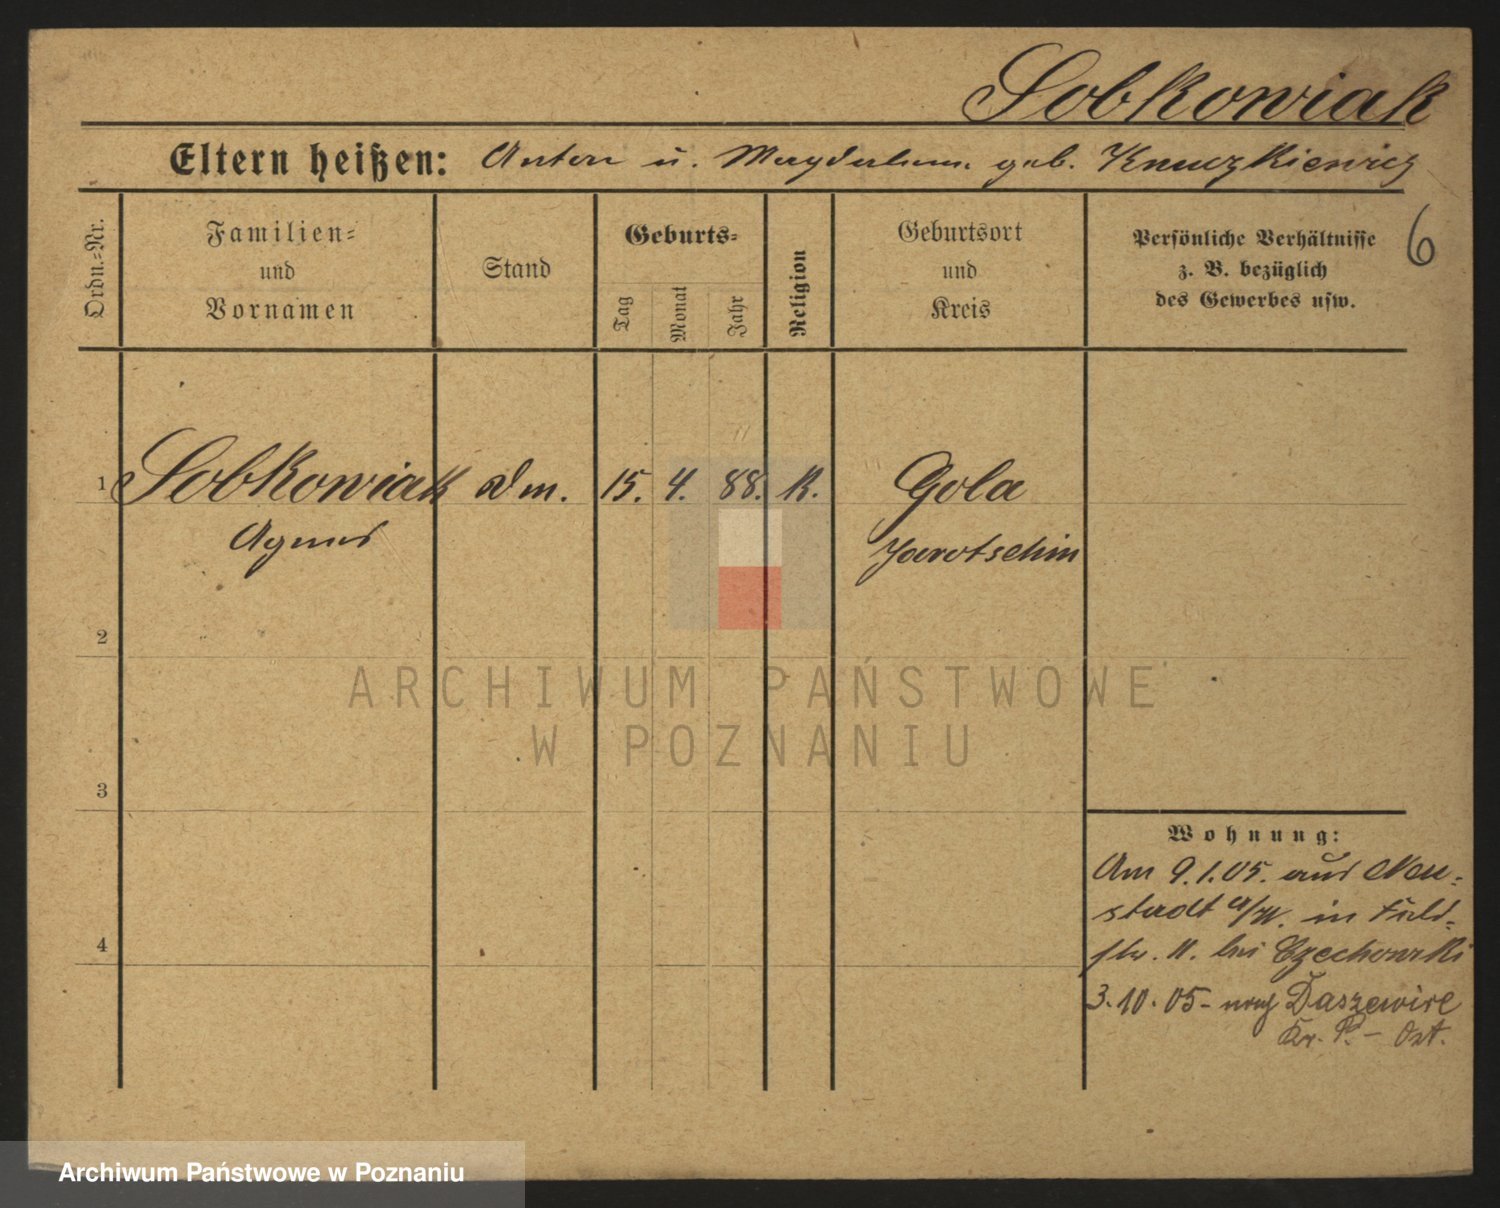 Sobkowiak
Eltern heißen: Anton u. Magdalena geb.
6
Ordn.-Nr.
Familien-
und
Vornamen
Stand
Geburts-
Tag
Monat
Jahr
Religion
Geburtsort
und
Kreis
Persönliche Verhältnisse
z. B. bezüglich
des Gewerbes usw.
1 Sobkowiak Dm. 15. 4. 88. K. Gola
Agnes Jarotschin
2
3
4
Wohnung:
Am 9.1.05. aus Neu-
stadt a/W. in Feld-
str. 11. bei Czechowski
3.10.05 - nach Daszewice
Kr. P. - Ost.
ARCHIWUM PAŃSTWOWE
W POZNANIU
Archiwum Państwowe w Poznaniu